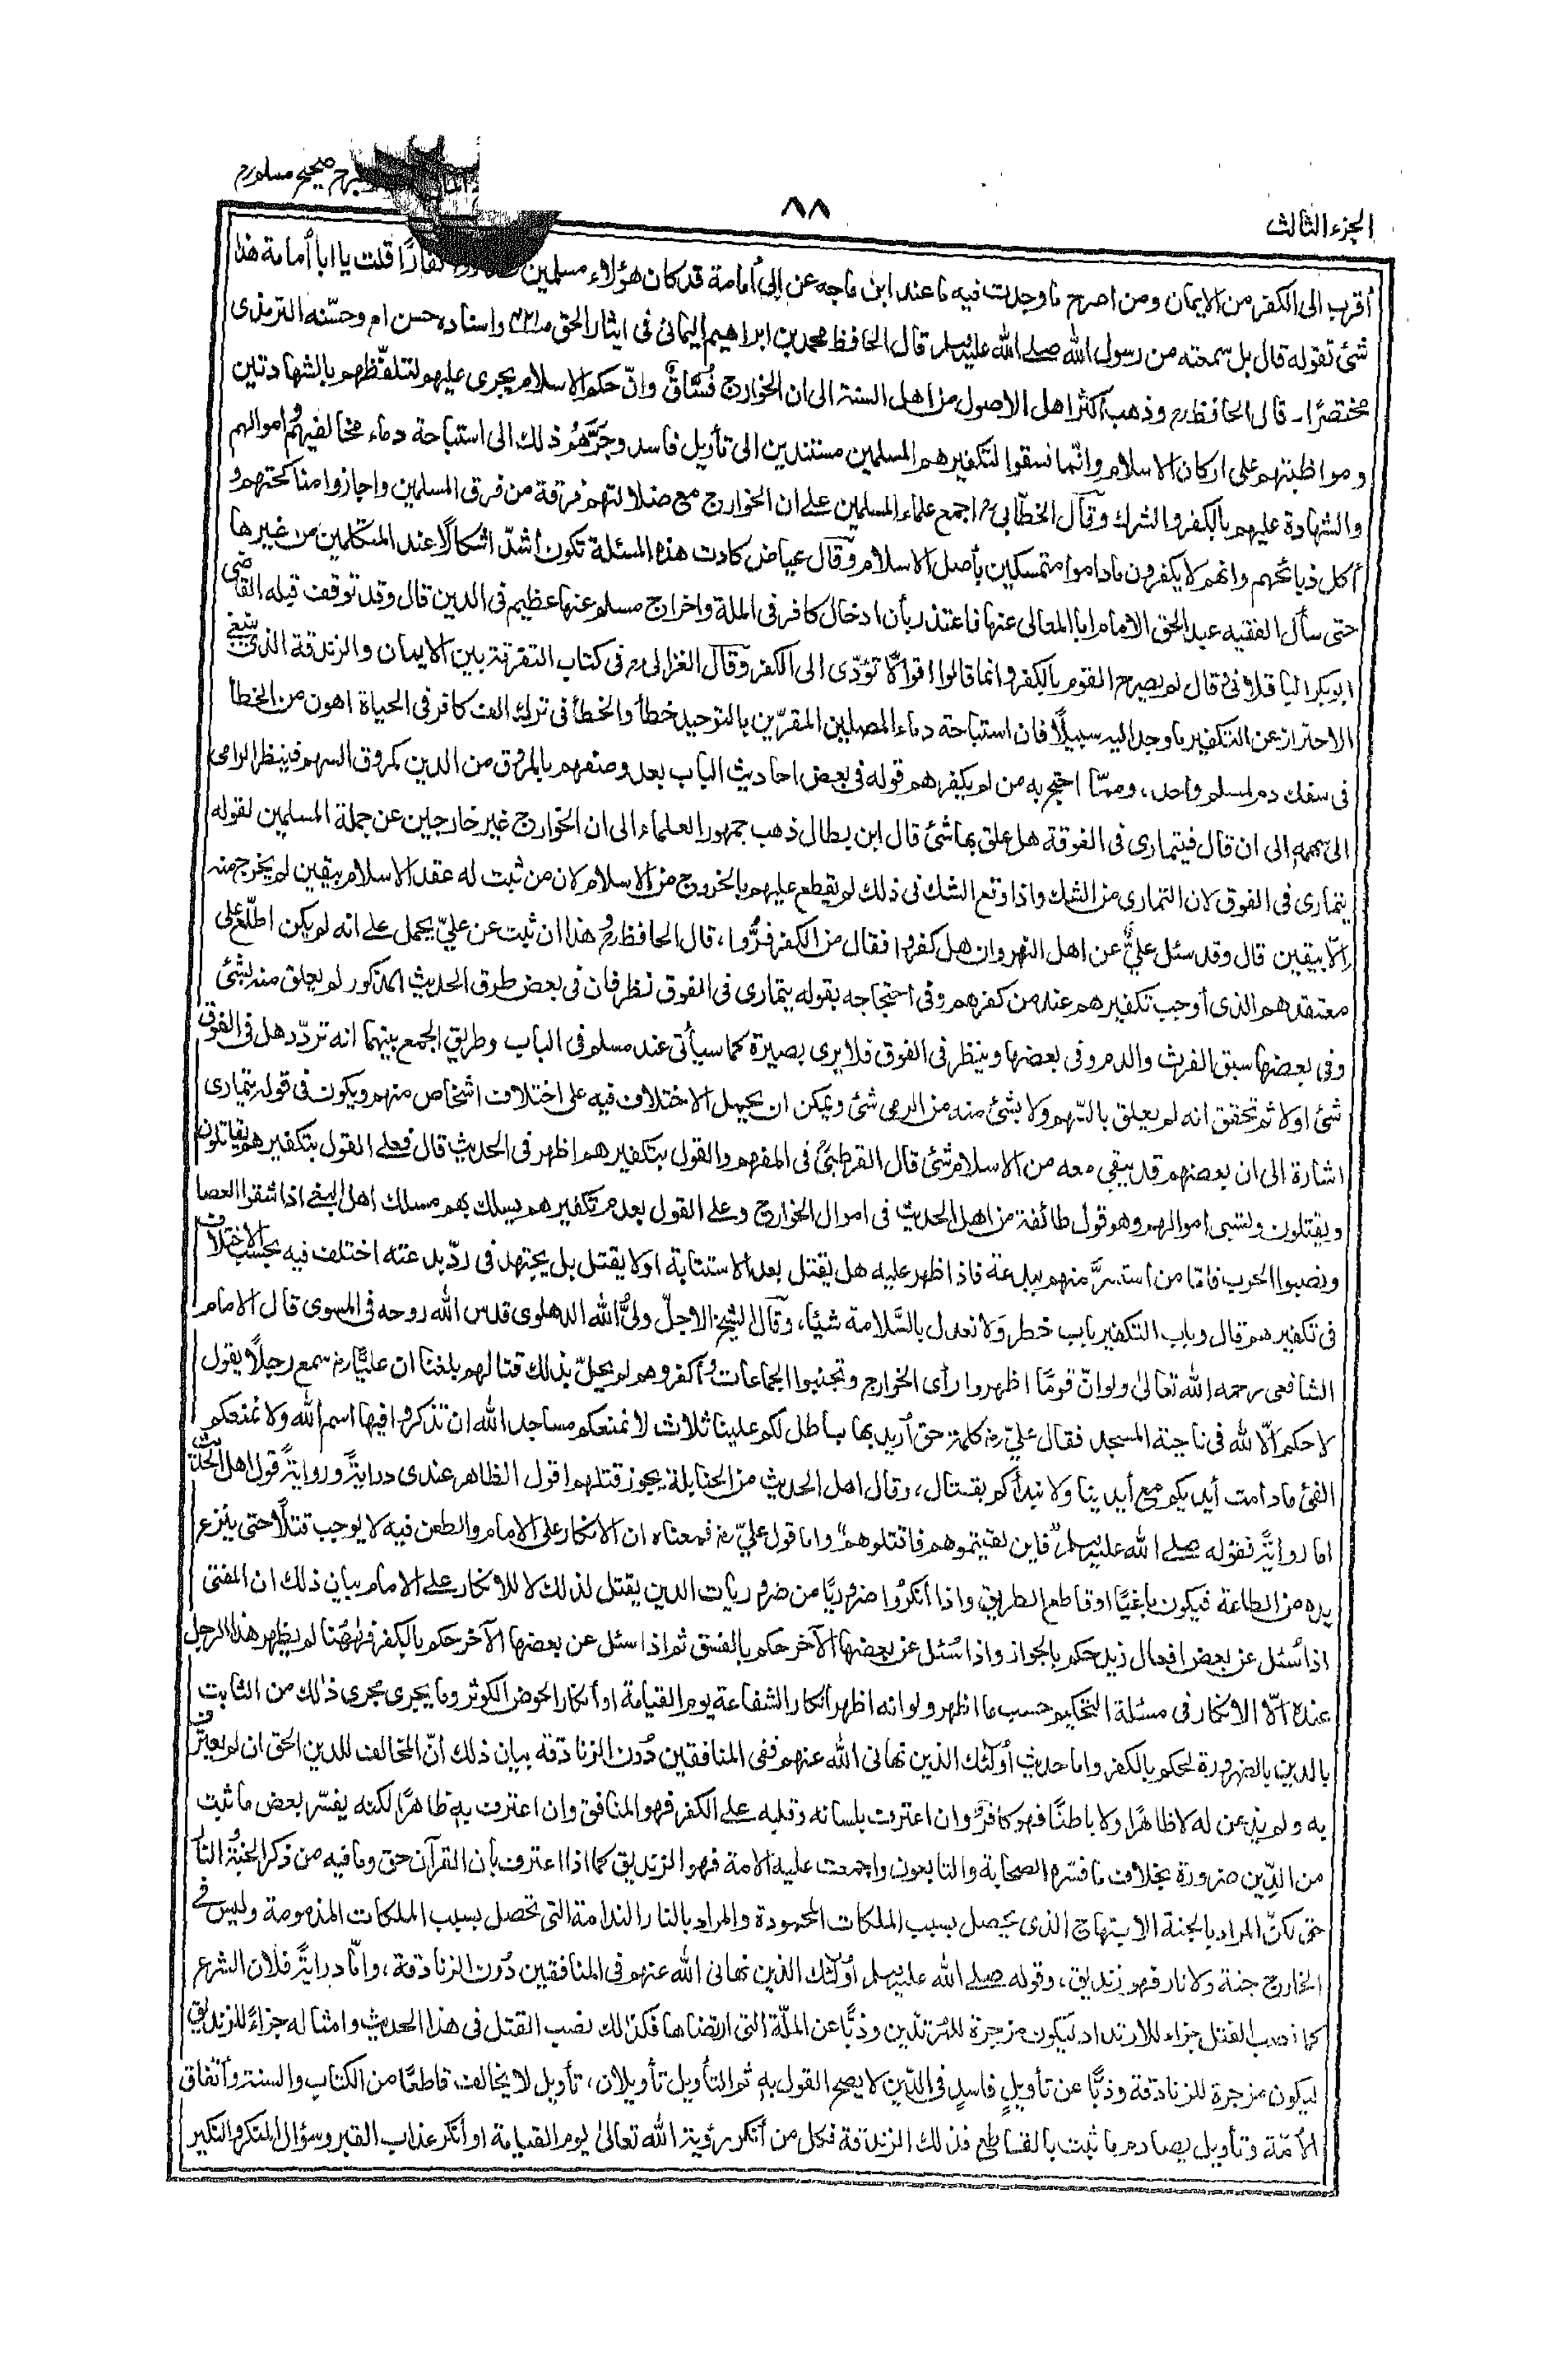 الجزء الثالث
٨٨
صحيح مسلم رح
أقرب الى الكفر من الايمان ومن اصرح ما وجدت فيه ما عند ابن ماجه عن ابى أمامة قد كان هؤلاء مسلمين كفارًا قلت يا ابا أمامة هذا
شئ تقوله قال بل سمعته من رسول الله صلے الله عليہ وسلم قال الحافظ محمد بن ابراهيم اليمانى فى ايثار الحق واسناده حسن ام وحسّنه الترمذى
مختصرًا ـ قال الحافظ رح وذهب اكثر اهل الاصول من اهل السنة الى ان الخوارج فُسَّاقٌ وانّ حكم الاسلام يجرى عليهم لتلفّظهم بالشهادتين
ومواظبتهم على اركان الاسلام وانّما فسقوا لتكفيرهم المسلمين مستندين الى تأويل فاسد وجَرَّهُم ذلك الى استباحة دماء مخالفيهم واموالهم
والشهادة عليهم بالكفر والشرك وقال الخطّابى رح اجمع علماء المسلمين علے ان الخوارج مع ضلالتهم فرقة من فرق المسلمين واجازوا مناكحتهم و
أكل ذبائحهم وانهم لا يكفرون ماداموا متمسكين بأصل الاسلام وقال عياض كادت هذه المسئلة تكون اشدّ اشكالًا عند المتكلمين من غيرها
حتى سأل الفقيه عبد الحق الامام ابا المعالى عنها فاعتذر بأن ادخال كافر فى الملة واخراج مسلم عنها عظيم فى الدين قال وقد توقف قبله القاضى
ابوبكر الباقلانى وقال لم يصرح القوم بالكفر وانما قالوا اقوالًا تؤدّى الى الكفر وقال الغزالى رح فى كتاب التفرقة بين الايمان والزندقة الذى ينبغى
الاحتراز عن التكفير ما وجد اليه سبيلًا فان استباحة دماء المصلين المقرّين بالتوحيد خطأ والخطأ فى ترك الف كافر فى الحياة اهون من الخطأ
فى سفك دم لمسلم واحد، وممّا احتج به من لم يكفرهم قوله فى بعض احاديث الباب بعد وصفهم بالمروق من الدين كمروق السهم فينظر الرامى
الى سهمه الى ان قال فيتمارى فى الفوقة هل علق بها شئ قال ابن بطال ذهب جمهور العلماء الى ان الخوارج غير خارجين عن جملة المسلمين لقوله
يتمارى فى الفوق لان التمارى من الشك واذا وقع الشك فى ذلك لم يقطع عليهم بالخروج من الاسلام لان من ثبت له عقد الاسلام بيقين لم يخرج منه
إلّا بيقين قال وقد سئل علىٌّ عن اهل النهروان هل كفروا فقال من الكفر فرُّوا، قال الحافظ رح وهذا ان ثبت عن علىّ يحمل علے انه لم يكن اطّلع على
معتقدهم الذى أوجب تكفيرهم عند من كفرهم وفى احتجاجه بقوله يتمارى فى الفوق نظر فان فى بعض طرق الحديث المذكور لم يعلق منه بشئ
وفى بعضها سبق الفرث والدم وفى بعضها وينظر فى الفوق فلا يرى بصيرة كما سيأتى عند مسلم فى الباب وطريق الجمع بينهما انه تردّد هل فى الفوق
شئ اولا ثم تحقق انه لم يعلق بالسّهم ولا بشئ منه من الرمى شئ ويمكن ان يحمل الاختلاف فيه على اختلاف اشخاص منهم ويكون فى قوله يتمارى
اشارة الى ان بعضهم قد يبقى معه من الاسلام شئ قال القرطبىؒ فى المفهم والقول بتكفيرهم اظهر فى الحديث قال فعلے القول بتكفيرهم يقاتلون
ويقتلون وتسبى اموالهم وهو قول طائفة من اهل الحديث فى اموال الخوارج وعلے القول بعدم تكفيرهم يسلك بهم مسلك اهل البغى اذا شقوا العصا
ونصبوا الحرب فامّا من استسرَّ منهم ببدعة فاذا ظهر عليه هل يقتل بعد الاستتابة او لا يقتل بل يجتهد فى ردّ بدعته اختلف فيه بحسب الاختلاف
فى تكفيرهم قال وباب التكفير باب خطر وَلا نعدل بالسَّلامة شيئا، وقال الشيخ الاجلّ ولىُّ الله الدهلوى قدس الله روحه فى المسوى قال الامام
الشافعى رحمه الله تعالىٰ ولو انّ قومًا اظهروا رأى الخوارج وتجنبوا الجماعات وأكفروهم لم يحلّ بذلك قتالهم بلغنا ان عليًّا رض سمع رجلًا يقول
لا حكم الّا لله فى ناحية المسجد فقال علىّ رض كلمة حق أريد بها باطل لكم علينا ثلاث لا نمنعكم مساجد الله ان تذكروا فيها اسم الله ولا نمنعكم
الفئ مادامت أيديكم مع أيدينا ولا نبدأكم بقتال، وقال اهل الحديث من الحنابلة يجوز قتلهم اقول الظاهر عندى درايةً وروايةً قول اهل الحديث
اما روايةً فقوله صلے الله عليہ وسلم "فاين لقيتموهم فاقتلوهم" واما قول علىّ رض فمعناه ان الانكار على الامام والطعن فيه لا يوجب قتلًا حتى ينزع
يده من الطاعة فيكون باغيًا او قاطع الطريق واذا أنكروا ضروريًا من ضروريات الدين يقتل لذلك لا للانكار علے الامام بيان ذلك ان المفتى
اذا سُئل عن بعض افعال زيد حكم بالجواز واذا سُئل عن بعضها الآخر حكم بالفسق ثم اذا سئل عن بعضها الآخر حكم بالكفر فههُنا لم يظهر هذا الرجل
عنده الّا الانكار فى مسئلة التحكيم حسب ما اظهر ولو انه اظهر انكار الشفاعة يوم القيامة او أنكار الحوض الكوثر وما يجرى مجرى ذلك من الثابت
بالدين بالضرورة لحكم بالكفر واما حديث أولٰئك الذين نهانى الله عنهم ففى المنافقين دُون الزنادقة بيان ذلك أنّ المخالف للدين الحق ان لم يعترف
به ولم يذعن له لا ظاهرًا ولا باطنًا فهو كافرٌ وان اعترف بلسانه وقلبه علے الكفر فهو المنافق وان اعترف به ظاهرًا لكنه يفسّر بعض ما ثبت
من الدِّين ضرورة بخلاف ما فسّره الصحابة والتابعون واجمعت عليه الامة فهو الزنديق كما اذا اعترف بأن القرآن حق وما فيه من ذكر الجنة والنار
حق لكنّ المراد بالجنة الابتهاج الذى يحصل بسبب الملكات المحمودة والمراد بالنار الندامة التى تحصل بسبب الملكات المذمومة وليس فى
الخارج جنة ولا نار فهو زنديق، وقوله صلے الله عليہ وسلم أولٰئك الذين نهانى الله عنهم فى المنافقين دُون الزنادقة، وامّا درايةً فلان الشرع
كما نصب القتل جزاء للارتداد ليكون مزجرة للمُرتدّين وذبًّا عن الملّة التى ارتضاها فكذلك نصب القتل فى هذا الحديث وامثاله جزاءً للزنديق
ليكون مزجرة للزنادقة وذبًّا عن تأويلٍ فاسدٍ فى الدِّين لا يصح القول بهٖ ثم التأويل تأويلان، تأويل لا يخالف قاطعًا من الكتاب والسنة واتّفاق
الأمّة وتأويل يصادم ما ثبت بالقاطع فذلك الزندقة فكل من أنكر رؤية الله تعالىٰ يوم القيامة او أنكر عذاب القبر وسؤال المنكر والنكير